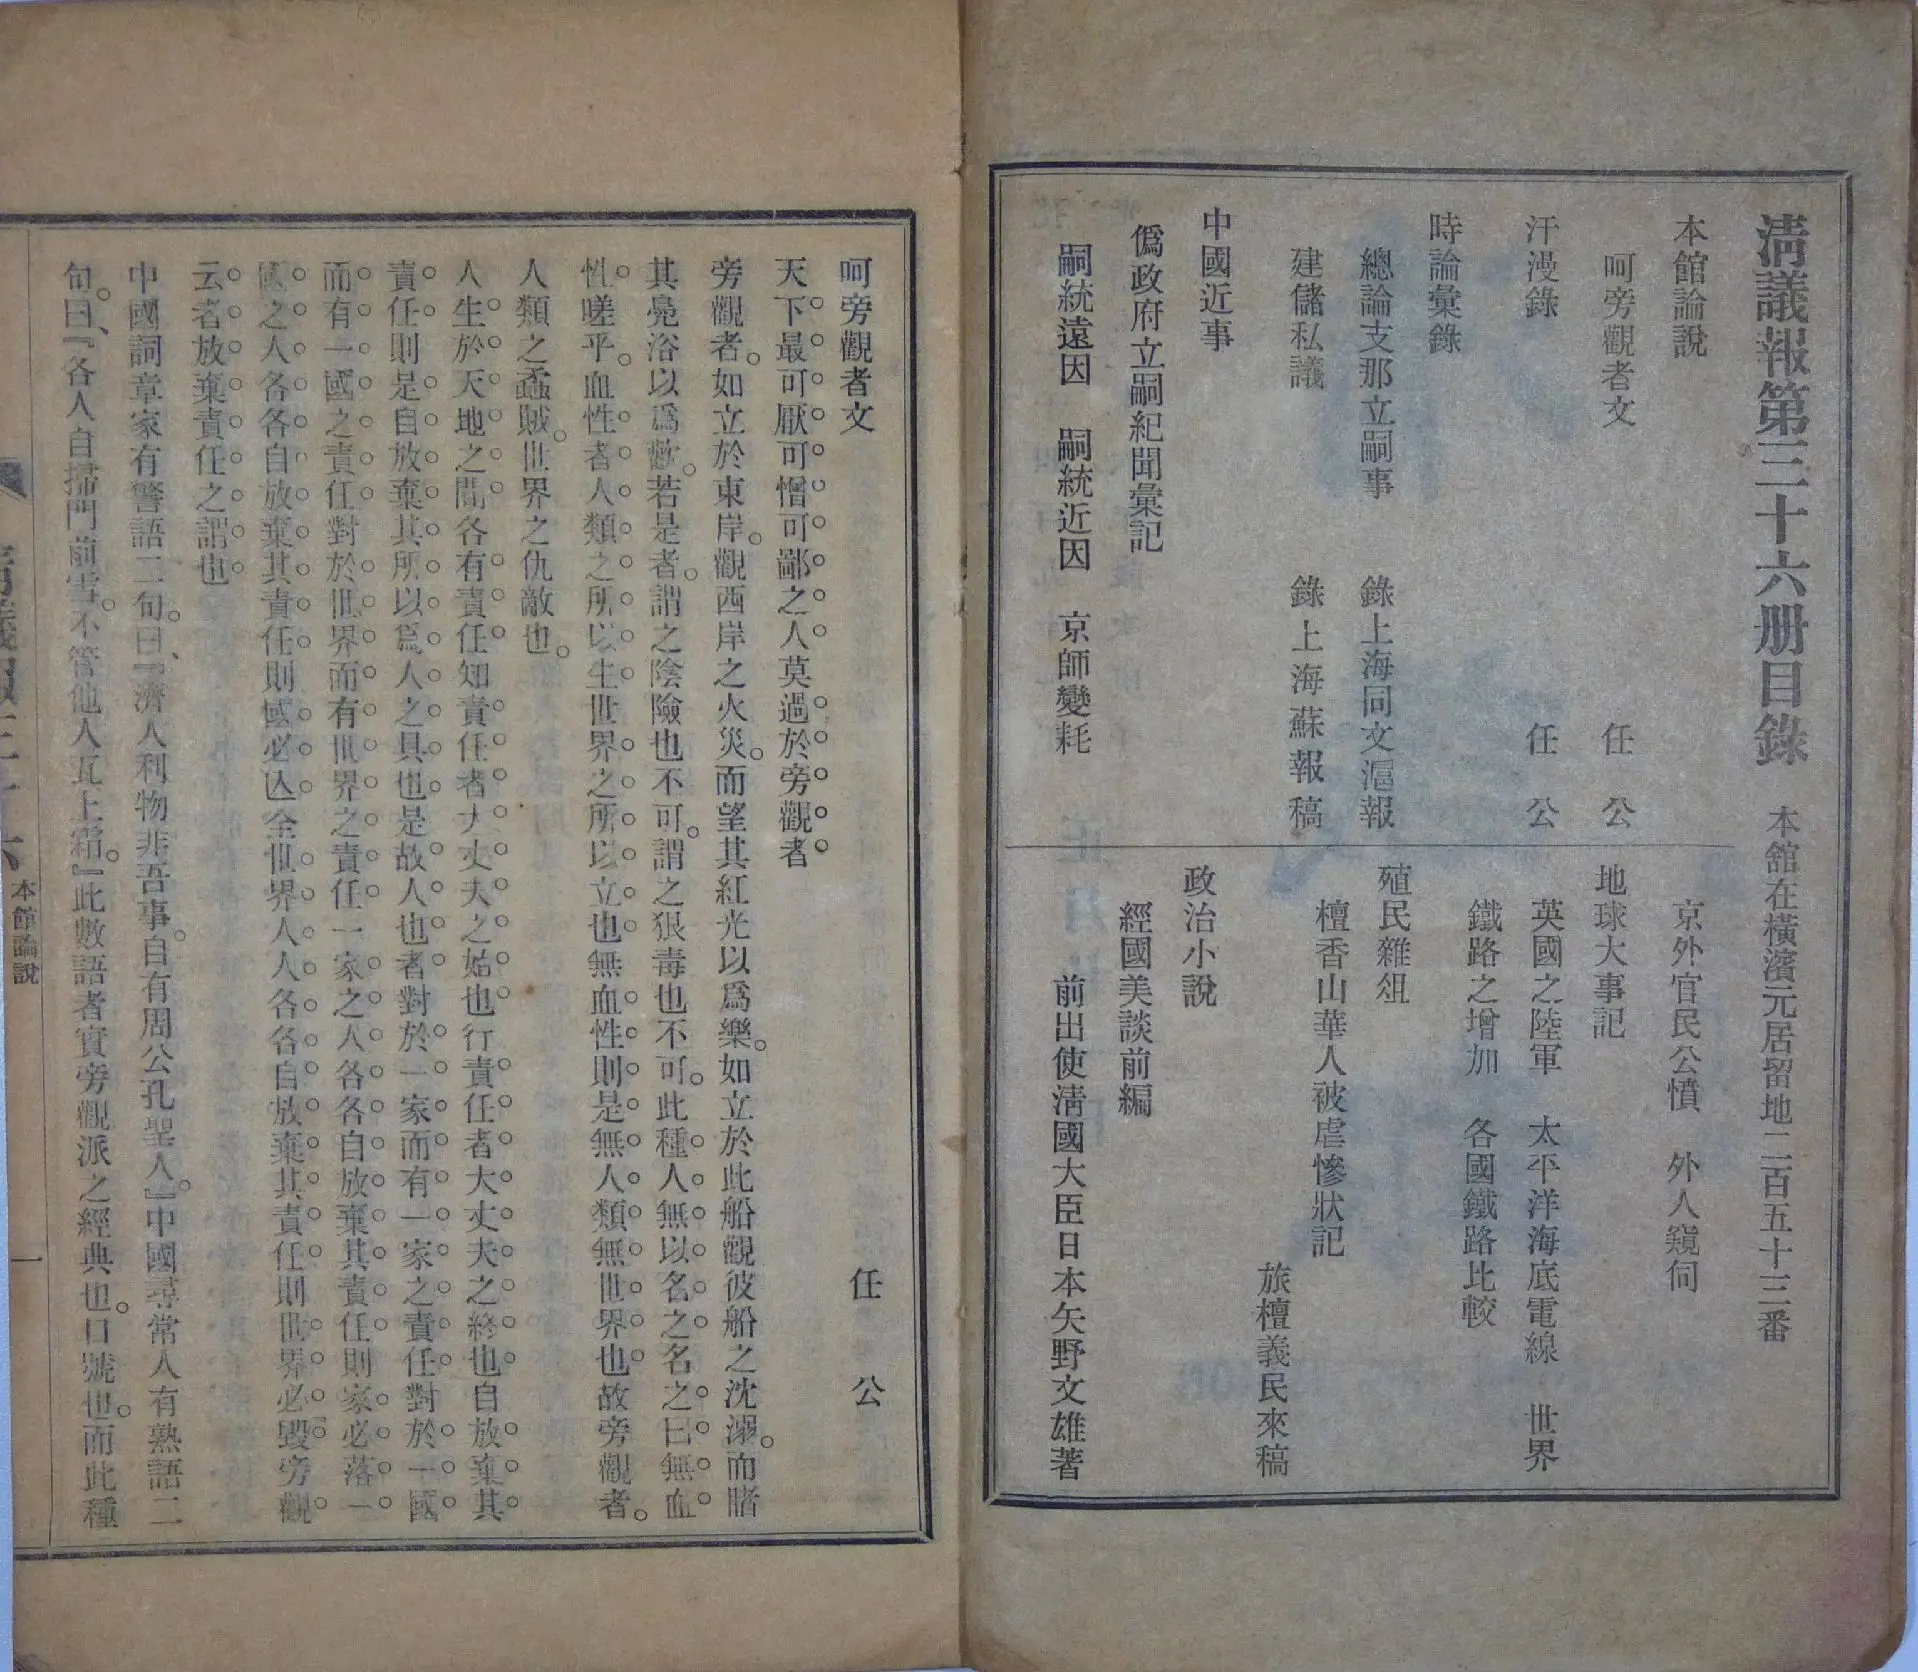 淸議報第三十六册目錄　本舘在橫濱元居留地二百五十三番
本館論說
呵旁觀者文　任公
汗漫錄　任公
時論彙錄
總論支那立嗣事　錄上海同文滬報
建儲私議　錄上海蘇報稿
中國近事
僞政府立嗣紀聞彙記
嗣統遠因　嗣統近因　京師變耗
京外官民公憤　外人窺伺
地球大事記
英國之陸軍　太平洋海底電線　世界
鐵路之增加　各國鐵路比較
殖民雜俎
檀香山華人被虐慘狀記
旅檀義民來稿
政治小說
經國美談前編
前出使淸國大臣日本矢野文雄著
呵旁觀者文　任公
天下最可厭可憎可鄙之人莫過於旁觀者
旁觀者。如立於東岸。觀西岸之火災。而望其紅光以爲樂。如立於此船觀彼船之沈溺。而睹
其鳧浴以爲歡。若是者。謂之陰險也不可。謂之狠毒也不可。此種人無以名之名之曰無血
性嗟乎。血性者人類之所以生世界之所以立也無血性則是無人類無世界也故旁觀者。
人類之蟊賊。世界之仇敵也。
人生於天地之間各有責任知責任者大丈夫之始也行責任者大丈夫之終也自放棄其
責任則是自放棄其所以爲人之具也是故人也者對於一家而有一家之責任對於一國
而有一國之責任對於世界而有世界之責任一家之人各各自放棄其責任則家必落一
國之人各各自放棄其責任則國必亡全世界人人各各自放棄其責任則世界必毀旁觀
云者放棄責任之謂也
中國詞章家有警語二句。曰、『濟人利物非吾事。自有周公孔聖人。』中國尋常人有熟語二
句。曰、『各人自掃門前雪。不管他人瓦上霜。』此數語者實旁觀派之經典也。口號也。而此種
淸議報三十六　本館論說　一